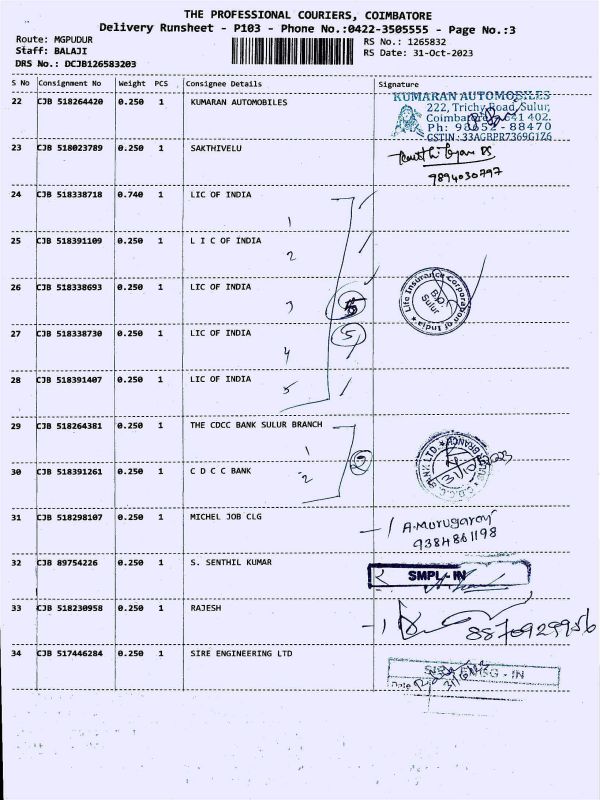 THE PROFESSIONAL COURIERS, COIMBATORE
Delivery Runsheet - P103 - Phone No.:0422-3505555 - Page No.:3
Route: MGPUDUR
Staff: BALAJI
DRS No.: DCJB126583203
RS No.: 1265832
RS Date: 31-Oct-2023
S No Consignment No Weight PCS Consignee Details Signature
22 CJB 518264420 0.250 1 KUMARAN AUTOMOBILES
KUMARAN AUTOMOBILES
222, Trichy Road, Sulur,
Coimbatore 641 402.
Ph: 98652-88470
GSTIN:33AGBPR7369G1Z6
23 CJB 518023789 0.250 1 SAKTHIVELU
9894030797
24 CJB 518338718 0.740 1 LIC OF INDIA
1
25 CJB 518391109 0.250 1 L I C OF INDIA
2
26 CJB 518338693 0.250 1 LIC OF INDIA
3
Life Insurance Corporation of India
B.O.
Sulur
27 CJB 518338730 0.250 1 LIC OF INDIA
5
4
28 CJB 518391407 0.250 1 LIC OF INDIA
5
29 CJB 518264381 0.250 1 THE CDCC BANK SULUR BRANCH
1
2
30 CJB 518391261 0.250 1 C D C C BANK
2
31 CJB 518298107 0.250 1 MICHEL JOB CLG
1 A.Murugaroj
9384861198
32 CJB 89754226 0.250 1 S. SENTHIL KUMAR
SMPL - IN
33 CJB 518230958 0.250 1 RAJESH
1
8870929956
34 CJB 517446284 0.250 1 SIRE ENGINEERING LTD
- IN
Date